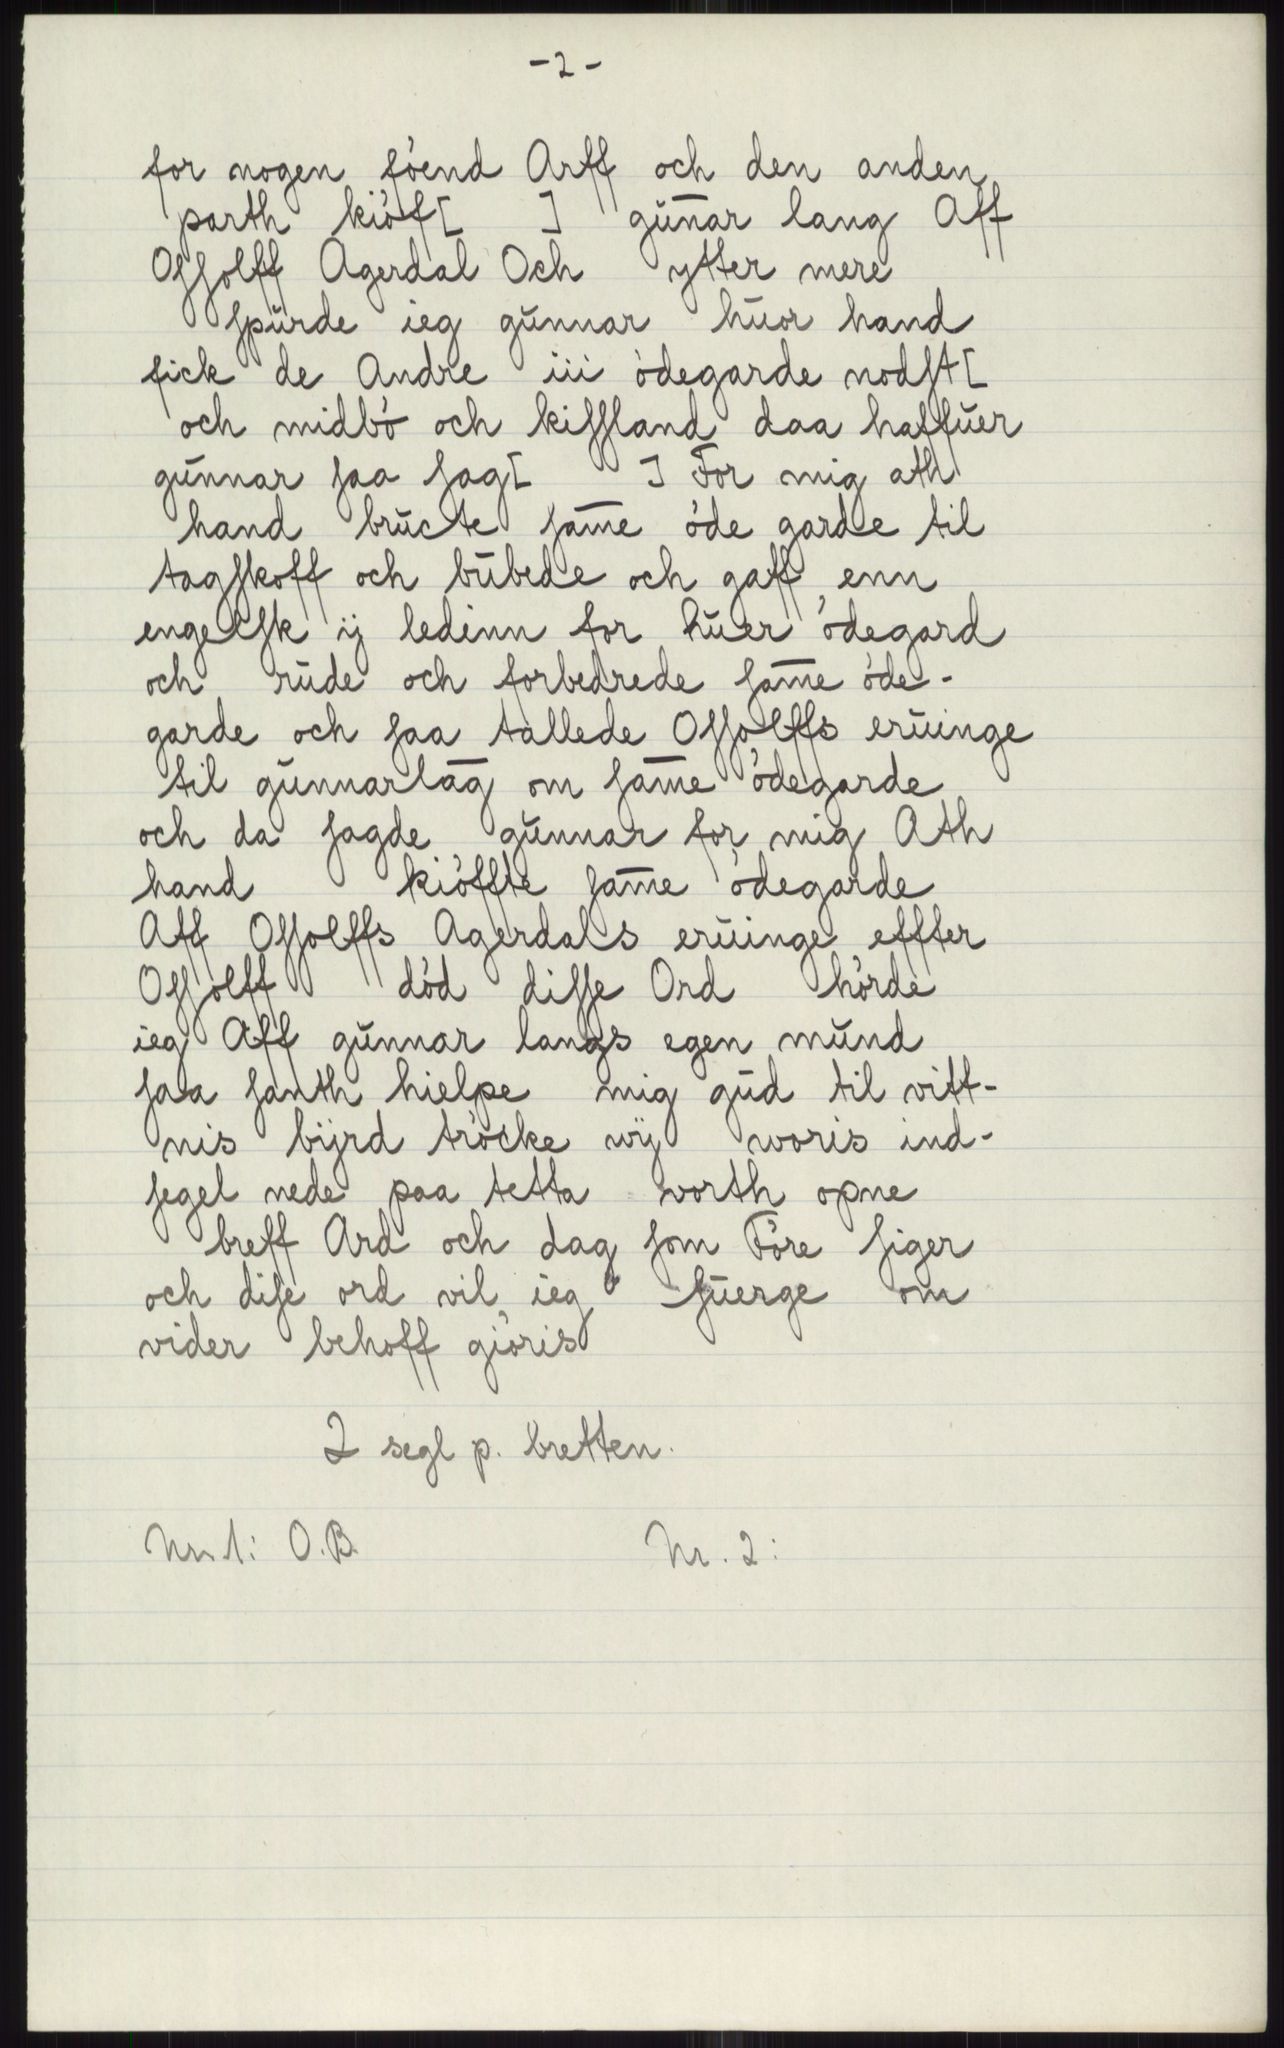 -2-
for nogen föend Arff och den anden
parth kiöf[ ] gūn̄ar lang Aff
Ossolff Agerdal Och ytter mere
spūrde ieg gūnnar hūor hand
fick de Andre iii ödegarde nodst[
och midbö och kiffland daa haffūer
gūnnar saa sag[ ] For mig ath
hand brūcte sam̄e öde garde til
tagskoff och būbede och gaff enn
engelsk ij ledinn for hūer ödegard
och rūde och forbedrede sam̄e öde-
garde och saa tallede Ossolffs erūinge
til gūnnarlāg om sam̄e ödegarde
och da sagde gūnnar for mig Ath
hand kiöffte sam̄e ödegarde
Aff Ossolffs Agerdals erūinge effter
Ossolff död disse Ord hörde
ieg Aff gūnnar langs egen mūnd
saa santh hielpe mig gūd til vitt-
nis bijrd tröcke wij woris ind-
segel nede paa tetta worth opne
breff Ard och dag som Före siger
och dise ord vil ieg sūerge om
vider behoff giöris
2 segl p. bretten.
Nr. 1: O.B. Nr. 2: